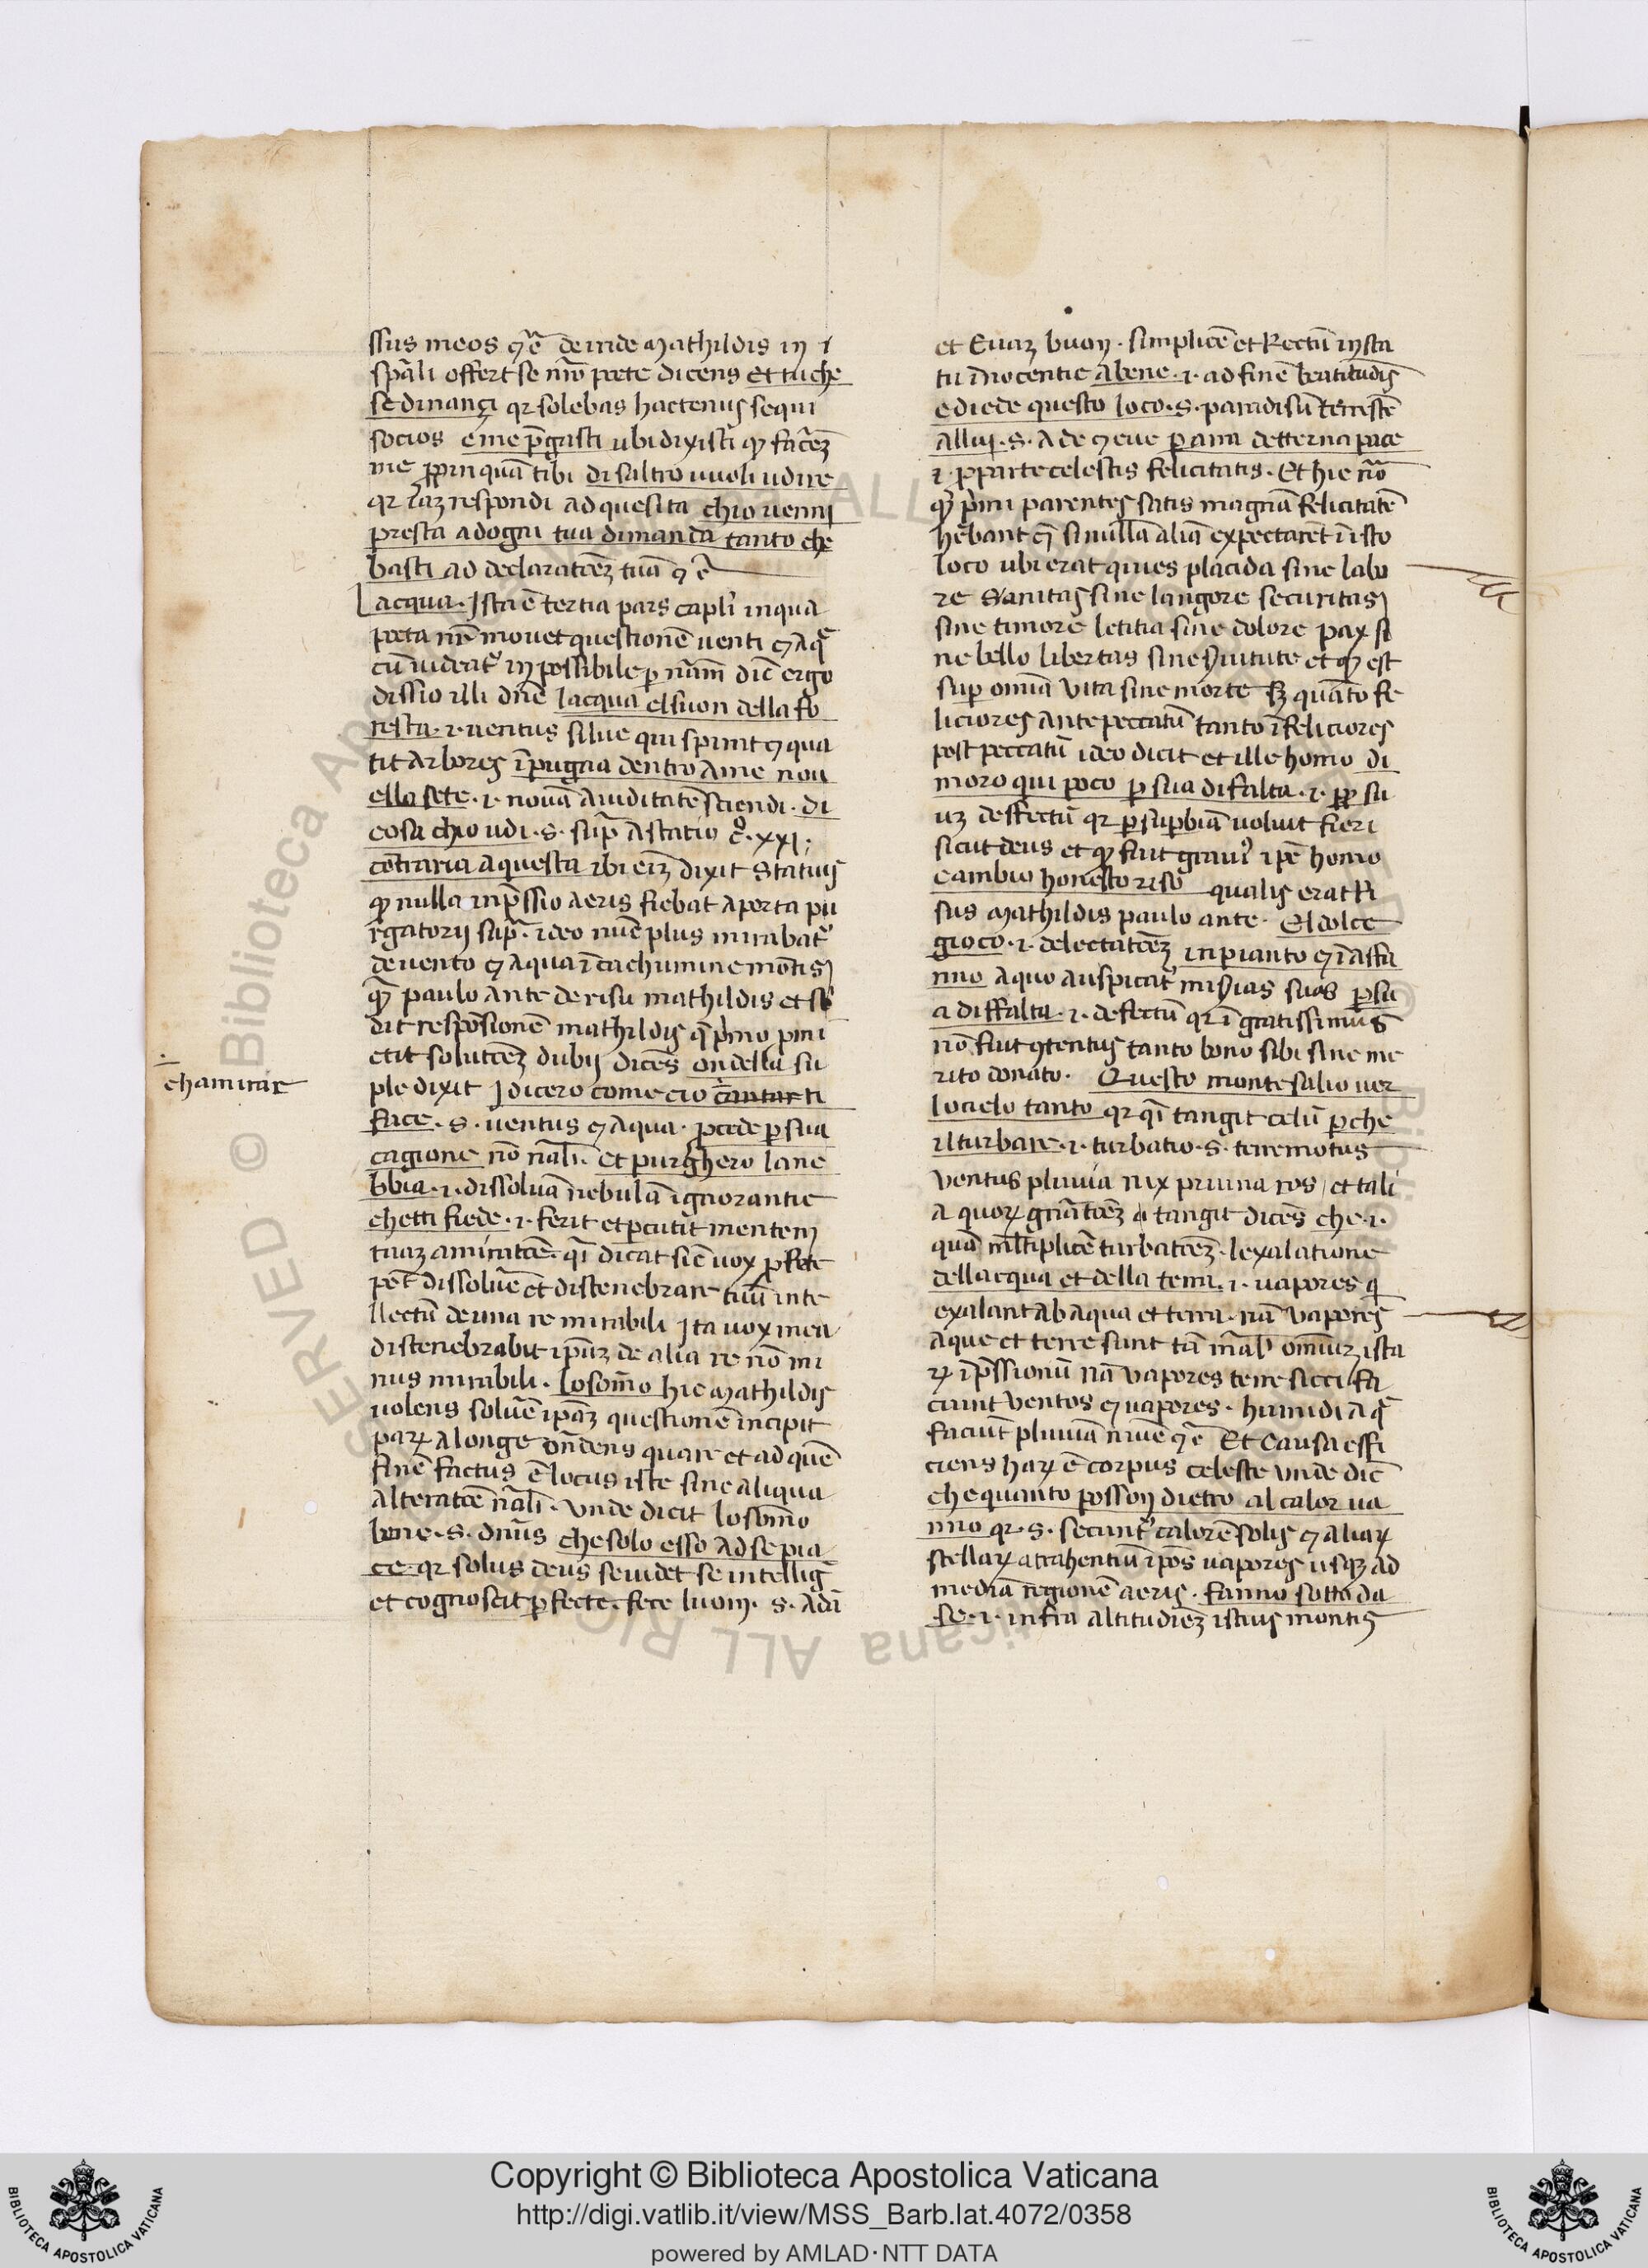 ssus meos ⁊c̃ deinde Mathildis in i
sp̃ali offert se nr̃o poete dicens Et tu che
se dinançi qr solebas hactenus sequi
socios e me p̃gasti ubi dixisti qꝫ facẽꝫ
me ꝓpinquã tibi di saltro uuoli udire
qr iaꝫ respondi ad quesita chio uenni
presta adogni tua dimanda tanto che
basti ad declaratõeꝫ tuã ⁊c̃
Lacqua. Ista ẽ tertia pars capl̃i in qua
poeta nr̃ mouet questionẽ uenti ⁊ aq̃
cũ uideat̃ inpossibile ꝑ nãm dic̃ ergo
dissio illi dñe lacqua elsuon della fo
resta .i. uentus silue qui spirat ⁊ qua
tit arbores ĩpugna dentro a me nou
ella fete .i. nouã auiditatẽ sciendi. di
cosa chio udi .s. sup̃ a statio c̃º. xxi.
contraria a questa ibi eiꝫ dixit Statius
qꝫ nulla inp̃ssio aeris fiebat a porta pu
rgatorij sup̃. ideo nũc plus mirabat̃
de uento ⁊ aqua ĩ cachumine montis
qꝫ paulo ante de risu mathildis et s
dit responsionẽ mathildis q̃ primo pmi
ctit solutõeꝫ dubij dicẽs ondella su
chamirar
ple dixit J dicero come cio cantar ti
face .s. uentus ⁊ aqua. ꝓcede ꝑ sua
cagione nõ nãli. et purghero la ne
bbia .i. dissoluã nebulã ignorantie
chetti fiede .i. ferit et ꝑcutit mentem
tuaꝫ amiratõe. q̃i dicat sic̃ uox ꝓfete
pẽt dissoluẽ et distenebrare tuũ inte
llectũ de una re mirabili Ita uox mea
distenebrabit ip̃uꝫ de alia re nõ mi
nus mirabili. Lo som̃o hic Mathildis
uolens soluẽ ip̃aꝫ questionẽ incipit
paꝝ a longe on̄dens quare et ad quẽ
finẽ factus ẽ locus iste sine aliqua
alteratõe nãli. Vnde dicit lo som̃o
bene .s. dnũs che solo esso ad se pia
ce qr solus deus se uidet se intellig̃
et cognoscit ꝑfecte. fece luom .s. adã
et Euaꝫ buon. simplicẽ et Rectũ in sta
tu ĩnocentie a bene .i. ad finẽ beatitudis̃
e diede questo loco .s. paradisũ terrestẽ
allui .s. ade ⁊ eue per arra detterna pace
.i. ꝓ parte celestis felicitatis. Et hic nõ
qꝫ p̃mi parentes satis magnã felicitatẽ
hẽbant ⁊ si nullã aliã expectarẽt ĩ isto
loco ubi erat quies placida sine labo
re Sanitas sine langore securitas
sine timore letitia sine dolore pax si
ne bello libertas sine Seruitute et qꝫ est
sup omia Vita sine morte sꝫ quãto fe
liciores ante peccatũ tanto ĩfeliciores
post peccatũ ideo dicit et ille homo di
moro qui poco ꝑ sua difalta .i. ꝓꝑ su
uꝫ deffectũ qr ꝑ supbiã uoluit fieri
sicut deus et qꝫ fuit graui᷑ ip̃e homo
cambio honesto riso qualis erat Ri
sus Mathildis paulo ante. El dolce
gioco .i. delectatõeꝫ in pianto ⁊ ĩ affa
nno a quo auspicat̃ insidias suas ꝑ su
a diffalta .i. defectũ qr ĩgratissimus
nõ fuit ꝯtentus tanto bono sibi sine me
rito donato. Questo monte salio uer
lo cielo tanto qr q̃i tangit celũ perche
il turbare .i. turbatio .s. terremotus
Ventus pluuia nix pruina ros / et tali
a quoꝝ gñatõeꝫ tangit dicẽs che .i.
quã ml̃tiplicẽ turbatõeꝫ. lexalatione
dellacqua et della terra .i. uapores q
exalant ab aqua et terra. nã Vapores
aque et terre sunt tã mãl omniuꝫ ista
ꝝ ĩp̃ssionũ nã Vapores terre sicci fa
ciunt Ventos ⁊ uapores. humidi aq̃
faciũt pluuiã niuẽ ⁊c̃ Et Causa effi
ciens haꝝ ẽ corpus celeste Vnde dic̃
che quanto posson dietro al calor ua
nno qr .s. secunt᷑ calorẽ solis ⁊ aliaꝝ
stellaꝝ atrahentiũ ip̃os uapores usqꝫ ad
mediã regionẽ aeris. fanno sotto da
se .i. infra altitudieꝫ istius montis
Copyright © Biblioteca Apostolica Vaticana
http://digi.vatlib.it/view/MSS_Barb.lat.4072/0358
powered by AMLAD·NTT DATA